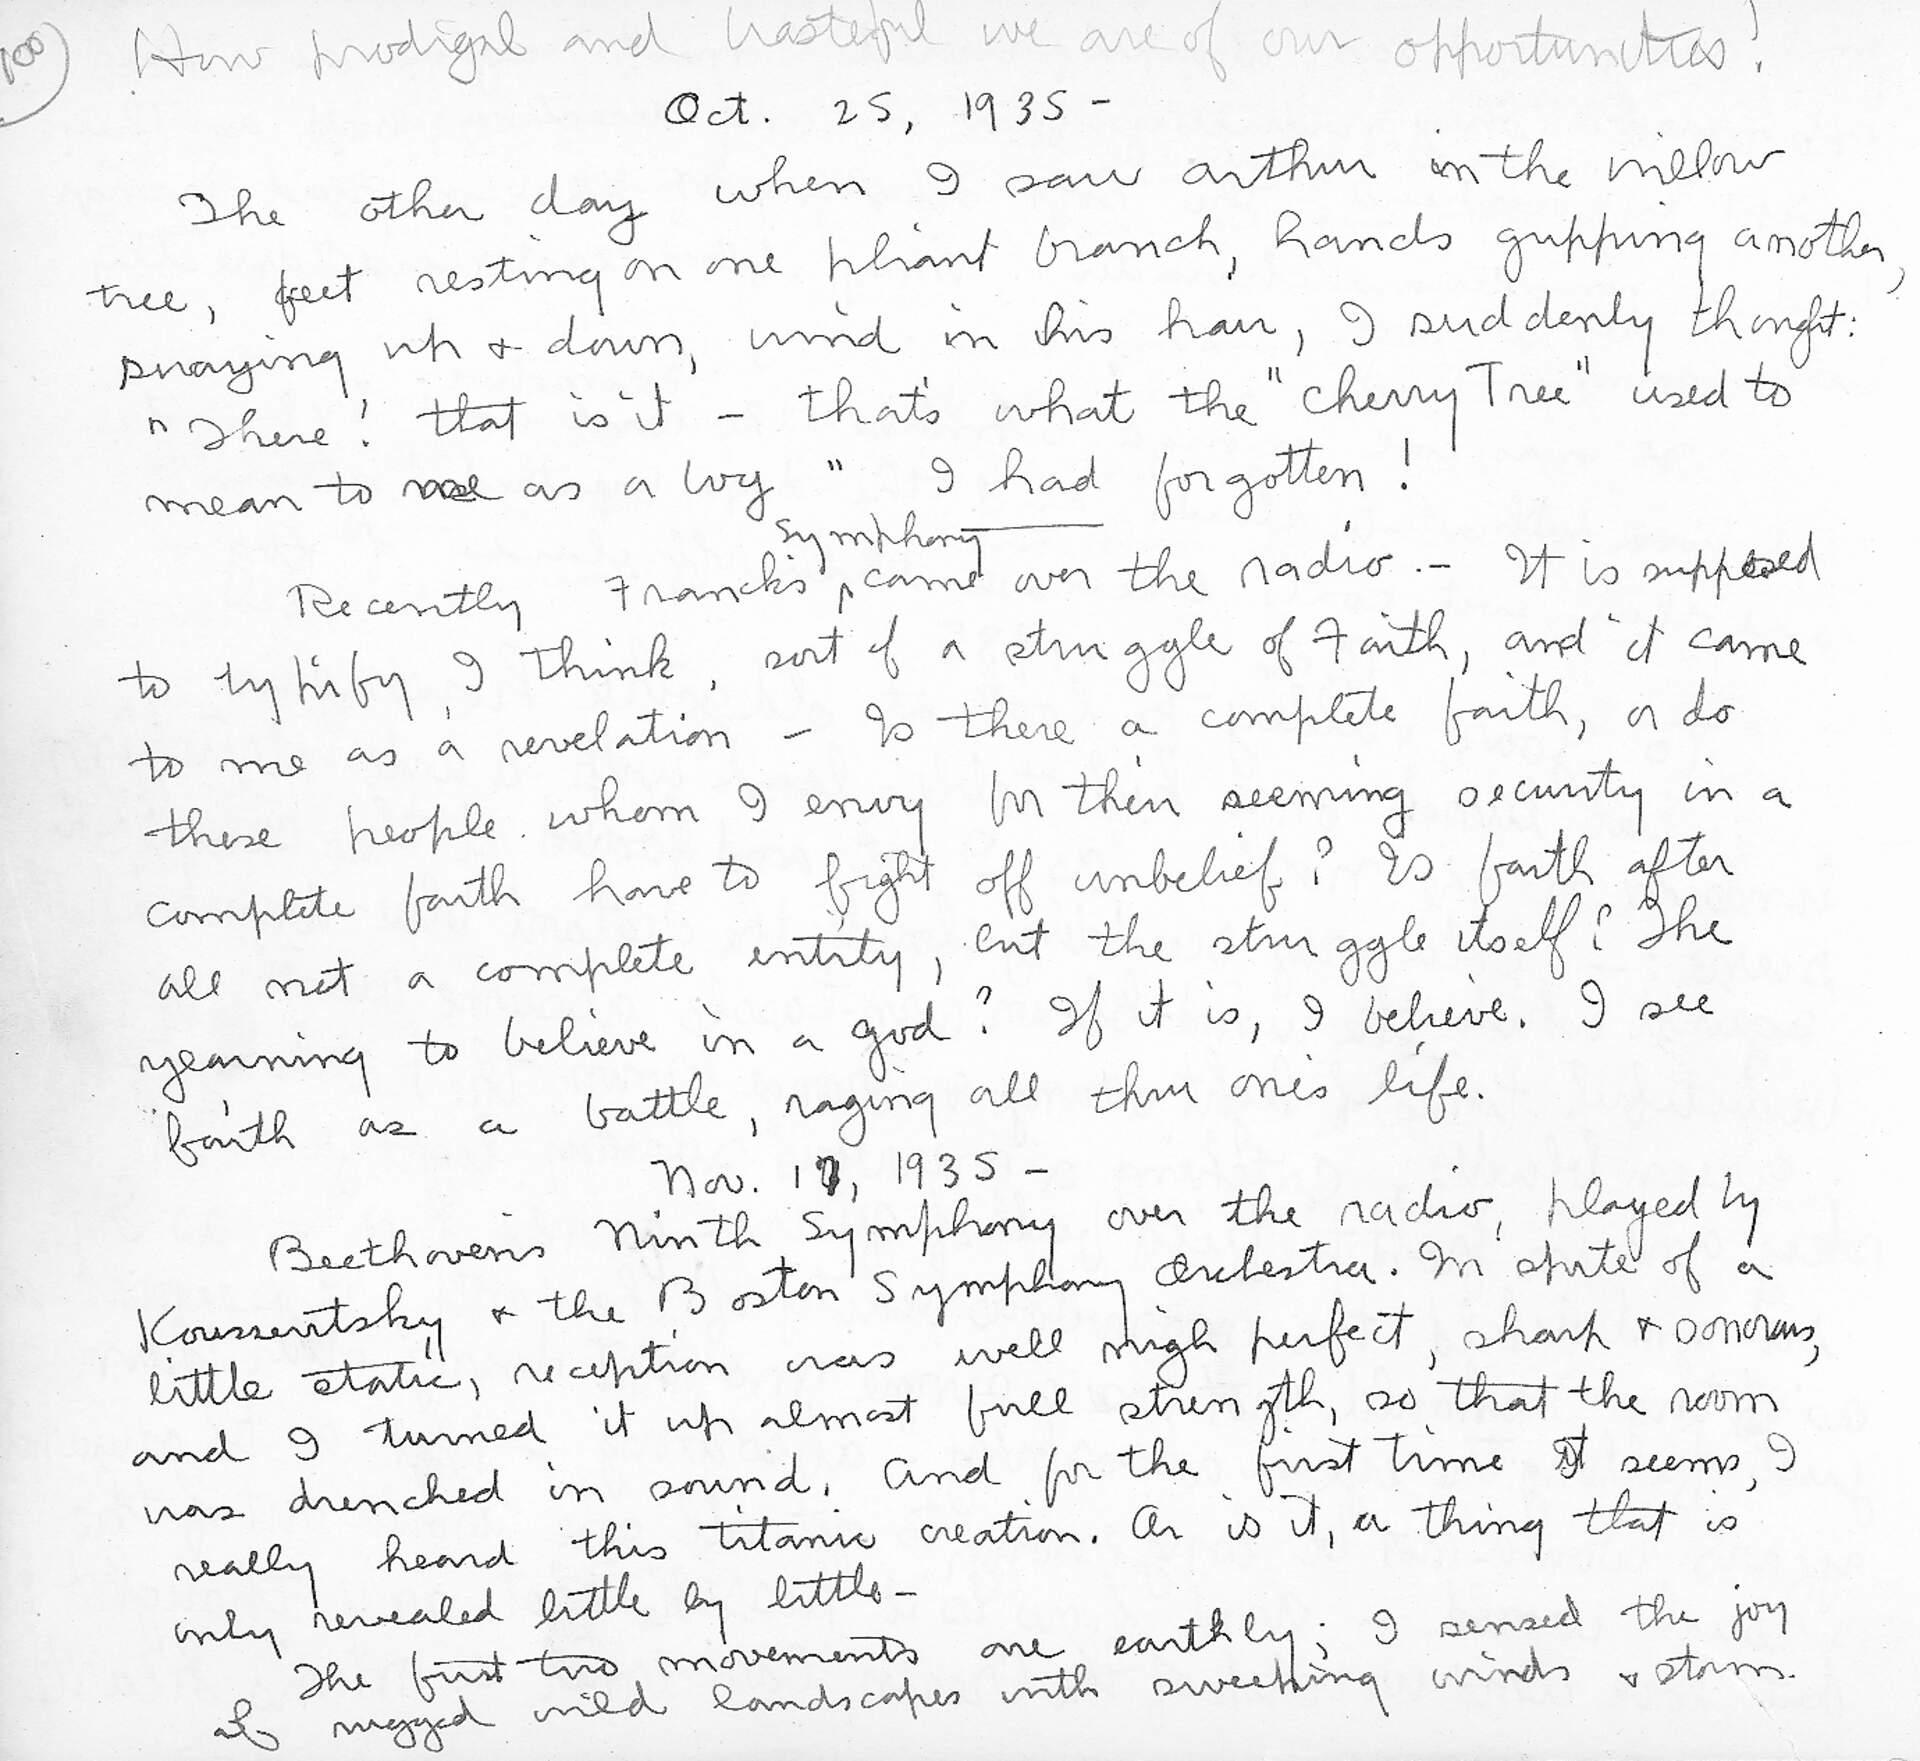 100
How prodigal and wasteful we are of our opportunities!
Oct. 25, 1935 -
The other day when I saw Arthur in the willow
tree, feet resting on one pliant branch, hands gripping another,
swaying up & down, wind in his hair, I suddenly thought:
"There! that is it - that's what the "Cherry Tree" used to
mean to me as a boy" I had forgotten!
Symphony
Recently Franck's ‸ came over the radio. - It is supposed
to typify, I think, sort of a struggle of Faith, and it came
to me as a revelation - Is there a complete faith, or do
these people whom I envy for their seeming security in a
complete faith have to fight off unbelief? Is faith after
all not a complete entity, but the struggle itself? The
yearning to believe in a god? If it is, I believe. I see
faith as a battle, raging all thru one's life.
Nov. 17, 1935 -
Beethoven's Ninth Symphony over the radio, played by
Koussevitsky & the Boston Symphony Orchestra. In spite of a
little static, reception was well nigh perfect, sharp & sonorous,
and I turned it up almost full strength, so that the room
was drenched in sound. And for the first time it seems, I
really heard this titanic creation. Or is it, a thing that is
only revealed little by little -
The first two movements are earthly; I sensed the joy
of rugged wild landscapes with sweeping winds & storms.